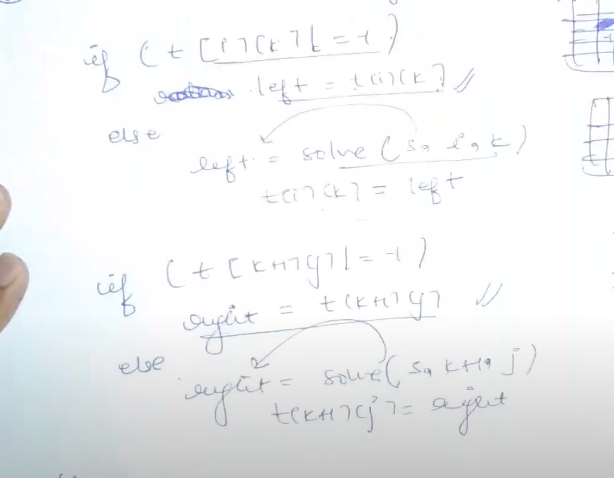 if (t[i][k] != -1)
left = t[i][k]
else
left = solve(s, i, k)
t[i][k] = left
if (t[k+1][j] != -1)
right = t[k+1][j]
else
right = solve(s, k+1, j)
t[k+1][j] = right